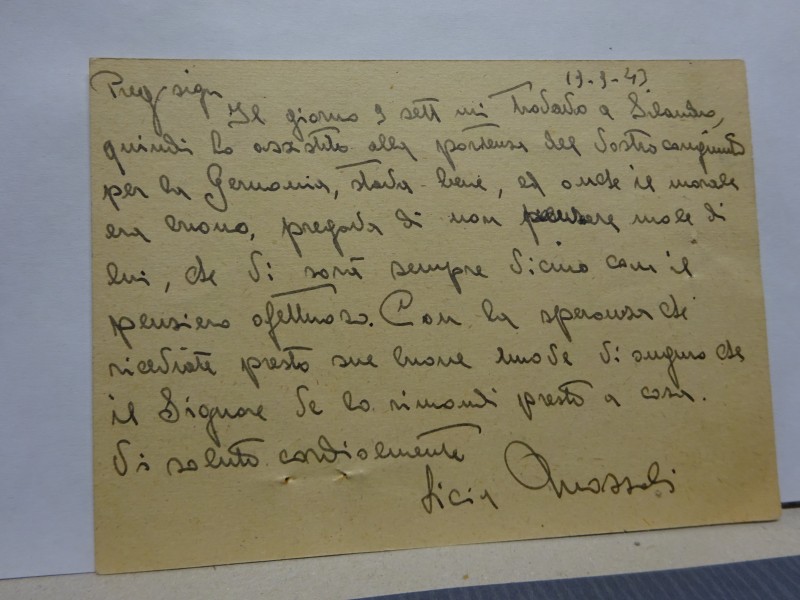 Preg. sign
13-9-43
Il giorno 9 sett mi trovavo a Silandro,
quindi ho assistito alla partenza del Vostro congiunto
per la Germania, stava bene, ed anche il morale
era buono, pregava di non pensare male di
lui, che Vi sarà sempre vicino con il
pensiero affettuoso. Con la speranza che
riceviate presto sue buone nuove Vi auguro che
il Signore Ve lo rimandi presto a casa.
Vi saluto cordialmente
Licia